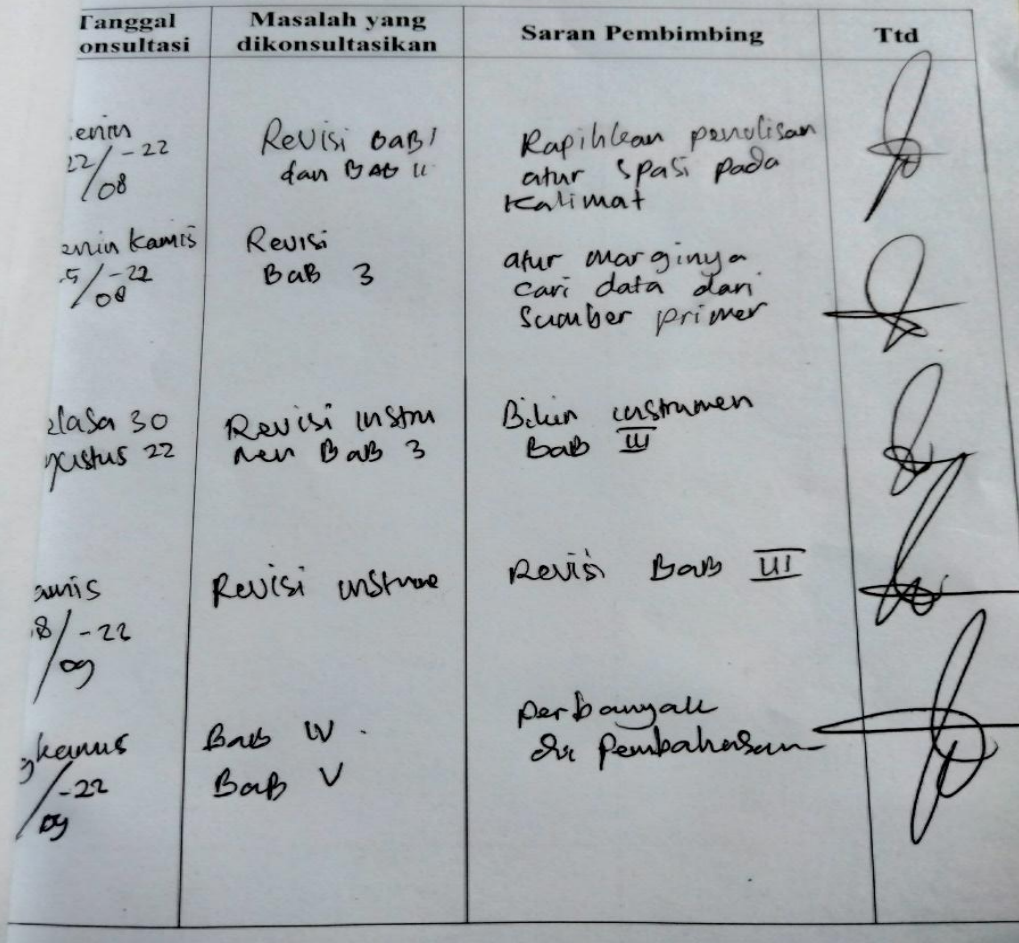 Tanggal
onsultasi
Masalah yang
dikonsultasikan
Saran Pembimbing
Ttd
enin
22/08-22
Revisi BaB I
dan BAB II
Rapihkan penulisan
atur spasi pada
Kalimat
enin kamis
5/08-22
Revisi
BaB 3
atur marginya
cari data dari
Sumber primer
elasa 30
gustus 22
Revisi instru
men BaB 3
Bikin instrumen
Bab III
amis
8/09-22
Revisi instrume
Revisi Bab III
kamis
/09-22
Bab IV
BaB V
perbanyak
di Pembahasan